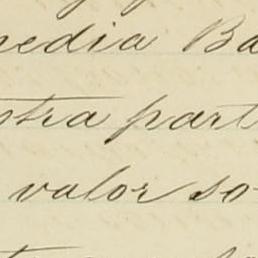 media Ba
otra part
valor so